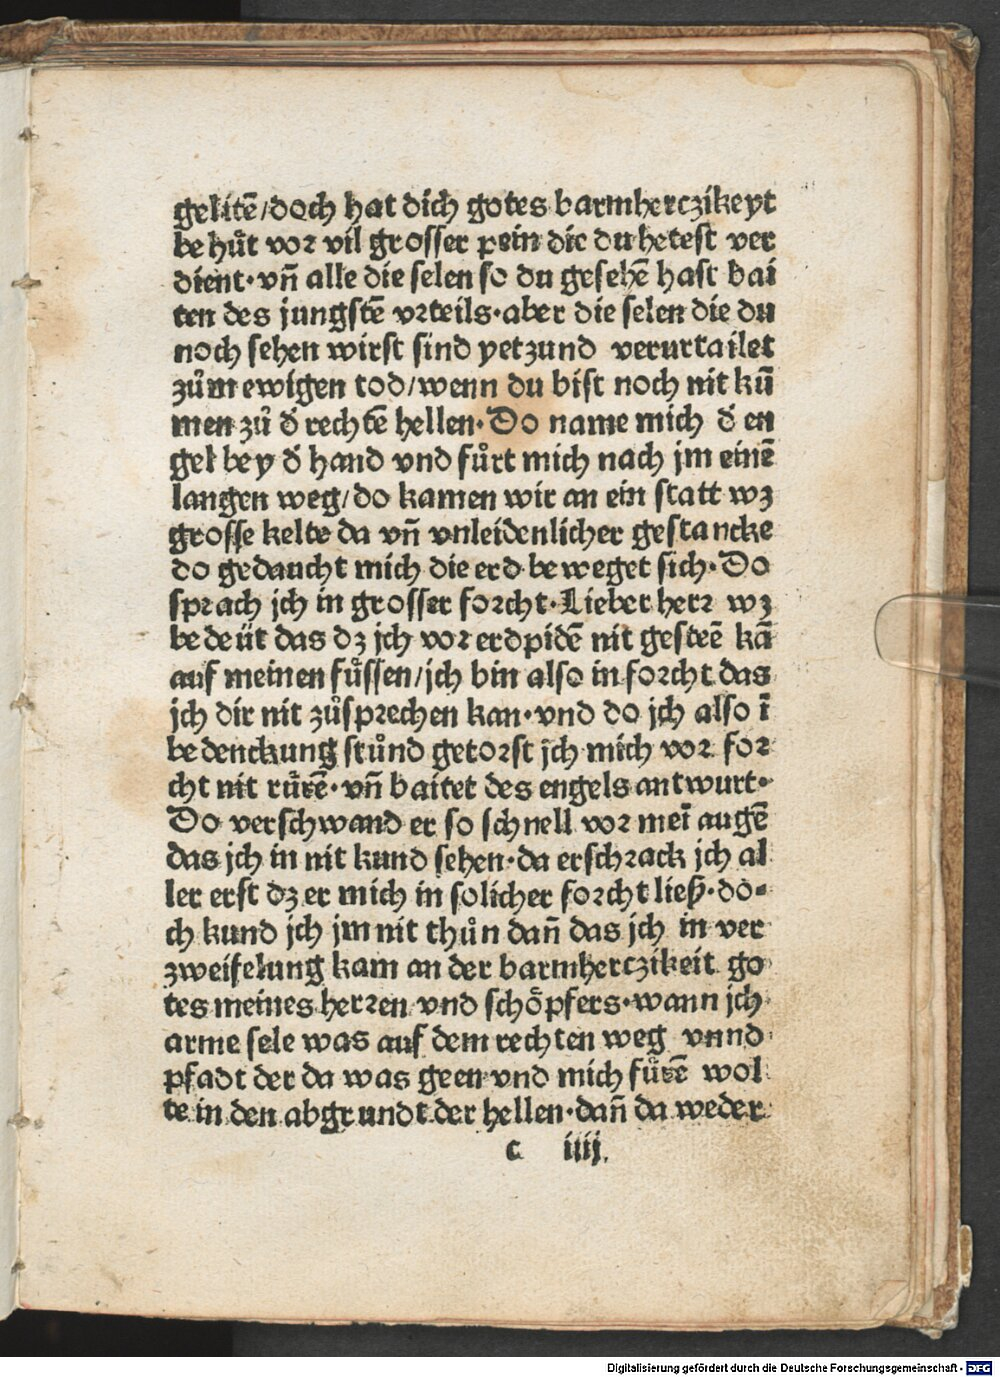 gelitē/doch hat dich gotes barmherczikeyt
be hüt vor vil grosser pein die du hetest ver
dient·vñ alle die selen so du gesehē hast bai
ten des jungstē vrteils·aber die selen die du
noch sehen wirst sind yetzund verurtailet
zům ewigen tod/wenn du bist noch nit kū
men zů d̕ rechtē hellen·Do name mich d̕ en
gel bey d̕ hand vnd fůrt mich nach jm einē
langen weg/do kamen wir an ein statt wz
grosse kelte da vñ vnleidenlicher gestancke
do gedaucht mich die erd beweget sich·Do
sprach jch in grosser forcht·Lieber herr wz
bedeüt das dz jch vor erdpidē nit gesteē kā
auf meinen füssen/jch bin also in forcht das
jch dir nit zůsprechen kan·vnd do jch also ī
bedenckung stůnd getorst jch mich vor for
cht nit rürē·vñ baitet des engels antwurt·
Do verschwand er so schnell vor meī augē
das jch in nit kund sehen·da erschrack jch al
ler erst dz er mich in solicher forcht ließ·do-
ch kund jch jm nit thůn dañ das jch in ver
zweifelung kam an der barmherczikeit go
tes meines herren vnd schöpfers·wann jch
arme sele was auf dem rechten weg vnnd
pfadt der da was geen vnd mich fürē wol
te in den abgrundt der hellen·dañ da weder
c iiij.
Digitalisierung gefördert durch die Deutsche Forschungsgemeinschaft - DFG